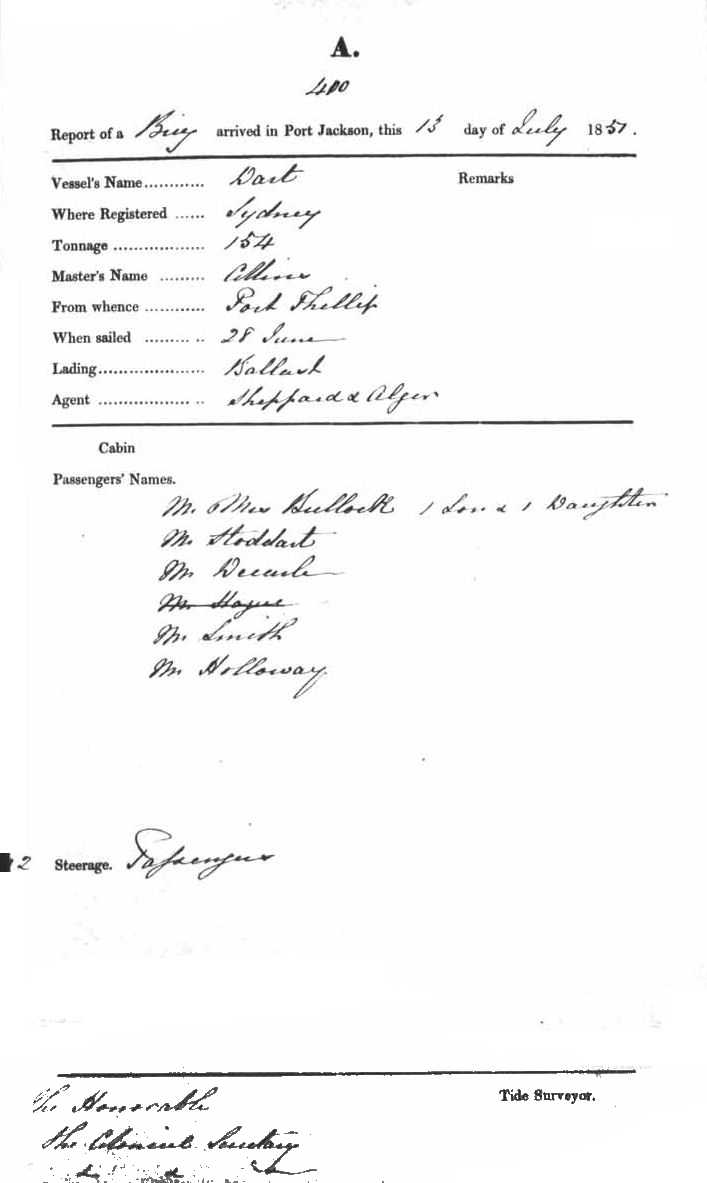 A.
400
Report of a Brig arrived in Port Jackson, this 13 day of July 1851.
Vessel's Name............ Dart Remarks
Where Registered ...... Sydney
Tonnage .................. 154
Master's Name .........
From whence ............ Port Phillip
When sailed ......... .. 28 June
Lading..................... Ballast
Agent .................. .. Sheppard & Alger
Cabin
Passengers' Names.
Mr. & Mrs Bullock 1 Son & 1 Daughter
Mr. Stoddart
Mr
Mr Hague
Mr. Smith
Mr Holloway
2 Steerage. Passengers
Tide Surveyor.
The Honorable
The Colonial Secretary